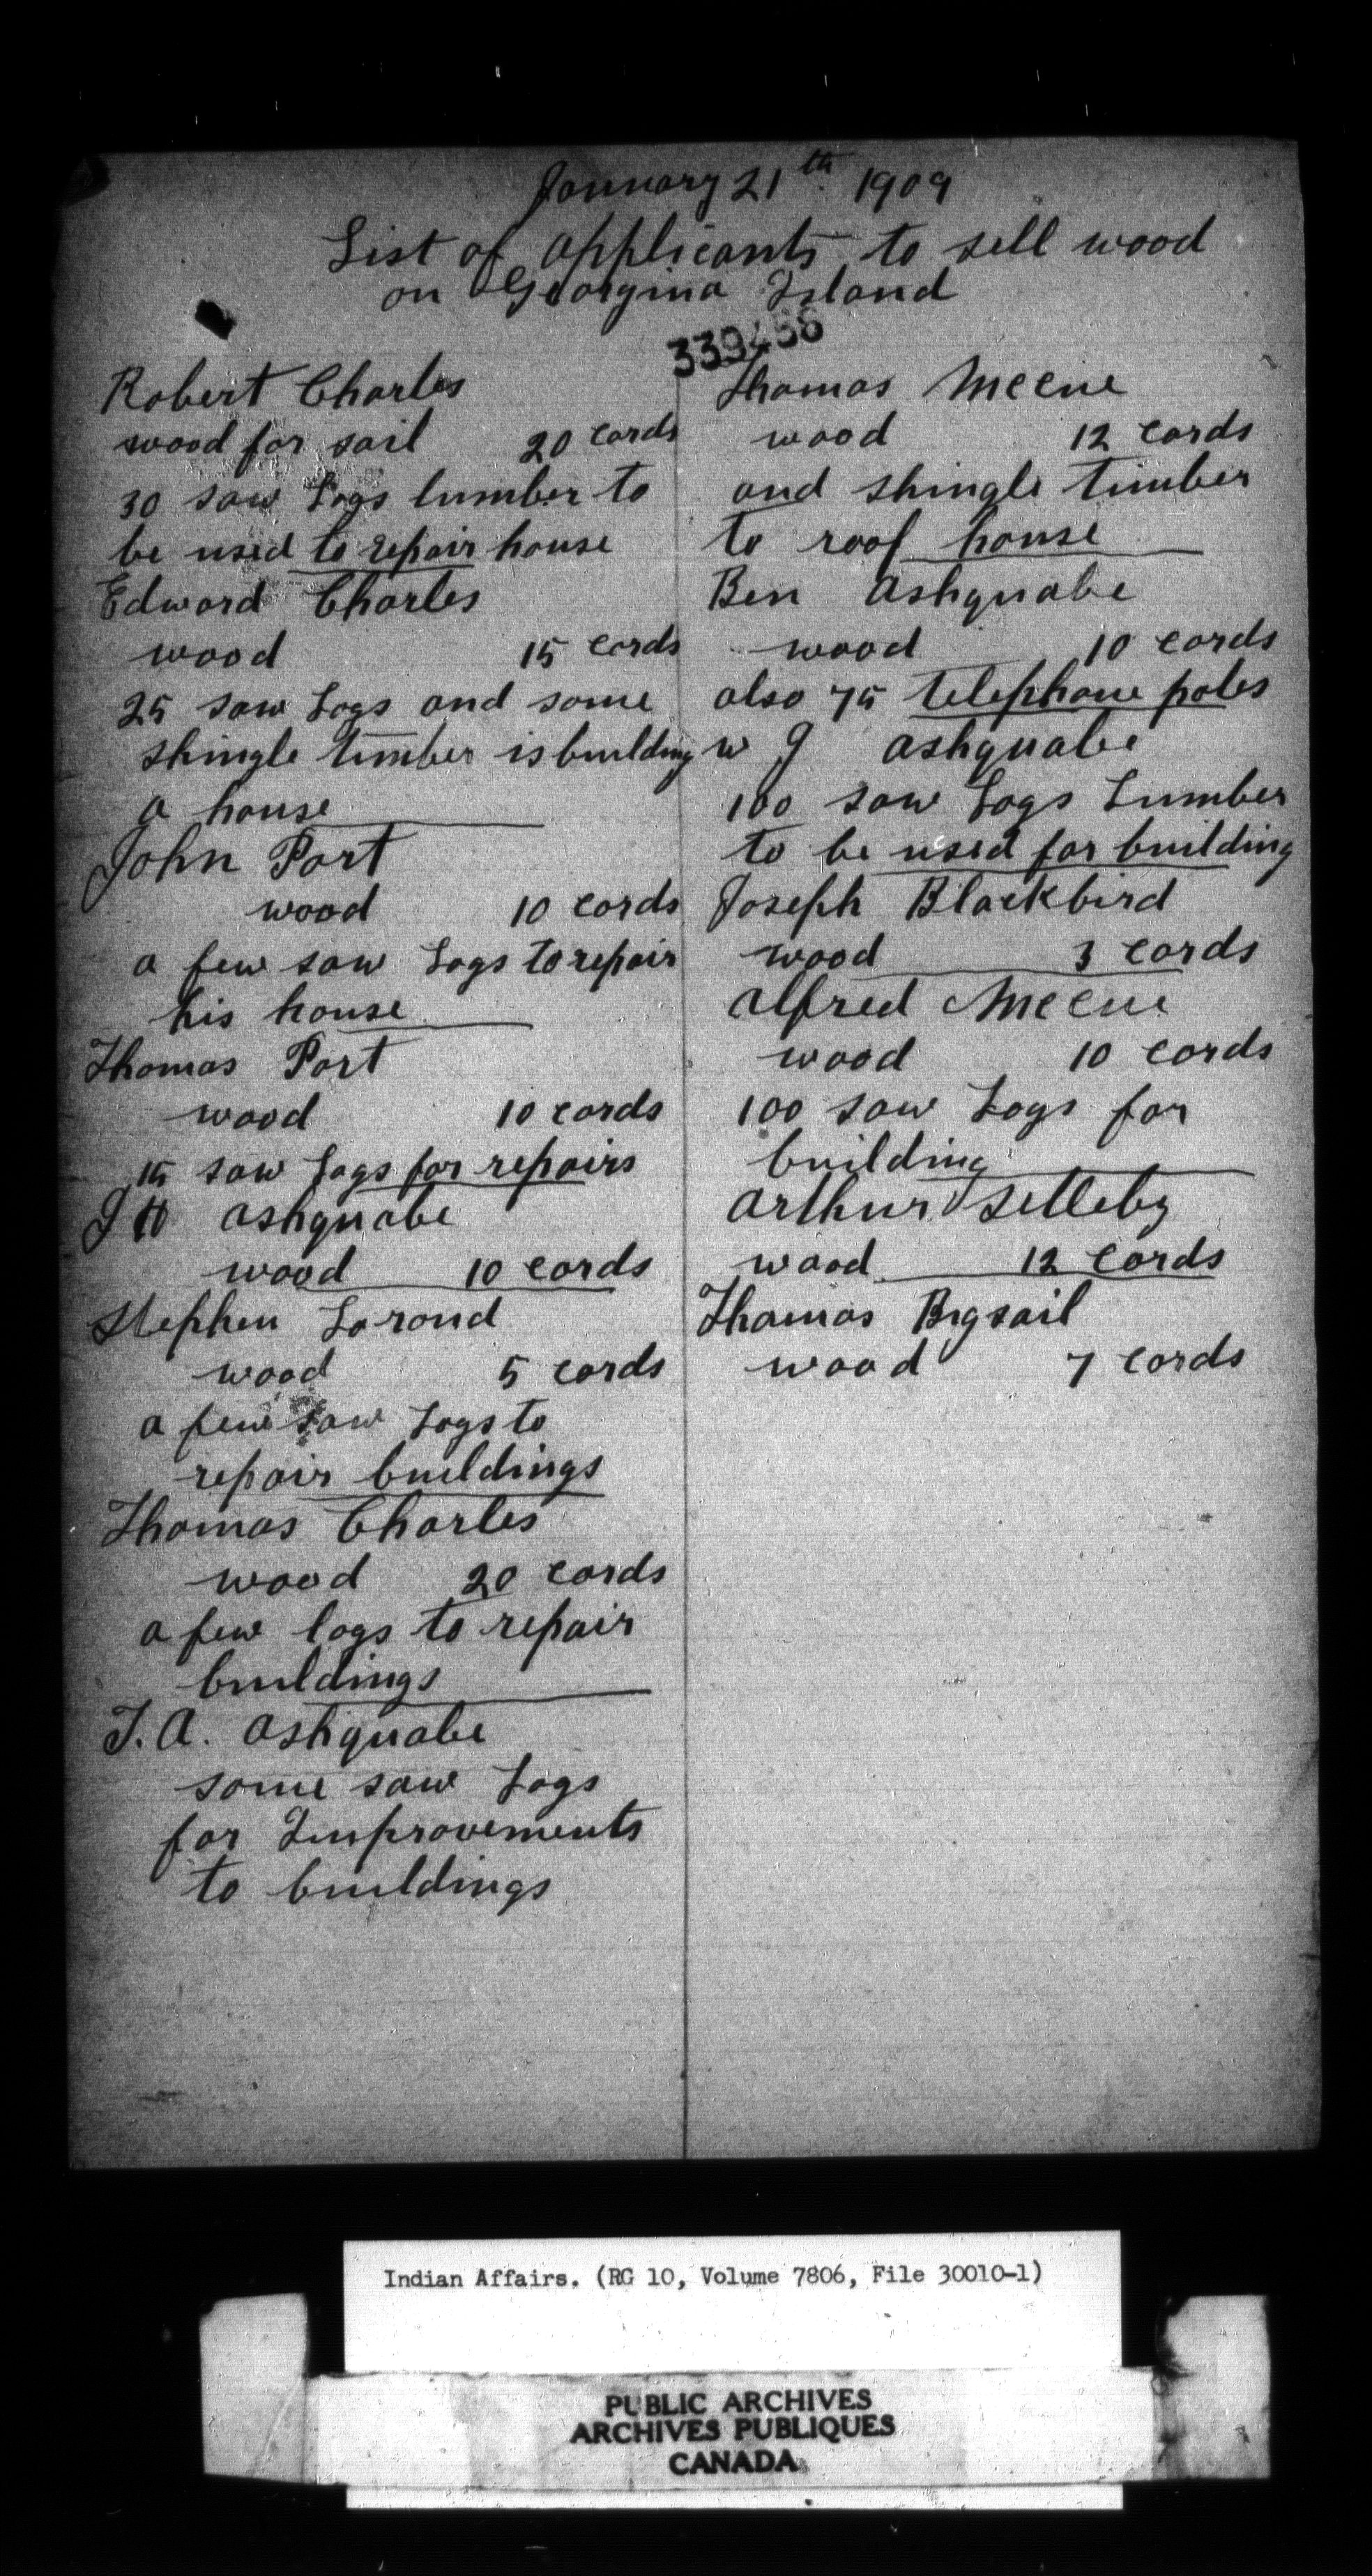 January 21th 1909
List of applicants to sell wood
on Georgina Island
339488
Robert Charles
wood for sail 20 cords
30 saw Logs lumber to
be used to repair house
Edward Charles
wood 15 cords
25 saw Logs and some
shingle timber is building
a house
John Port
wood 10 cords
a few saw Logs to repair
his house
Thomas Port
wood 10 cords
15 saw Logs for repairs
J H Ashquabe
wood 10 cords
Stephen Larond
wood 5 cords
a few saw Logs to
repair buildings
Thomas Charles
wood 20 cords
a few logs to repair
buildings
T.A. Ashquabe
some saw Logs
for Improvements
to buildings
Thomas McCue
wood 12 cords
and shingle timber
to roof house
Ben Ashquabe
wood 10 cords
also 75 telephone poles
W J Ashquabe
100 saw Logs Lumber
to be used for building
Joseph Blackbird
wood 3 cords
Alfred McCue
wood 10 cords
100 saw Logs for
building
Arthur
wood 12 cords
Thomas Bigsail
wood 7 cords
Indian Affairs. (RG 10, Volume 7806, File 30010-1)
PUBLIC ARCHIVES
ARCHIVES PUBLIQUES
CANADA